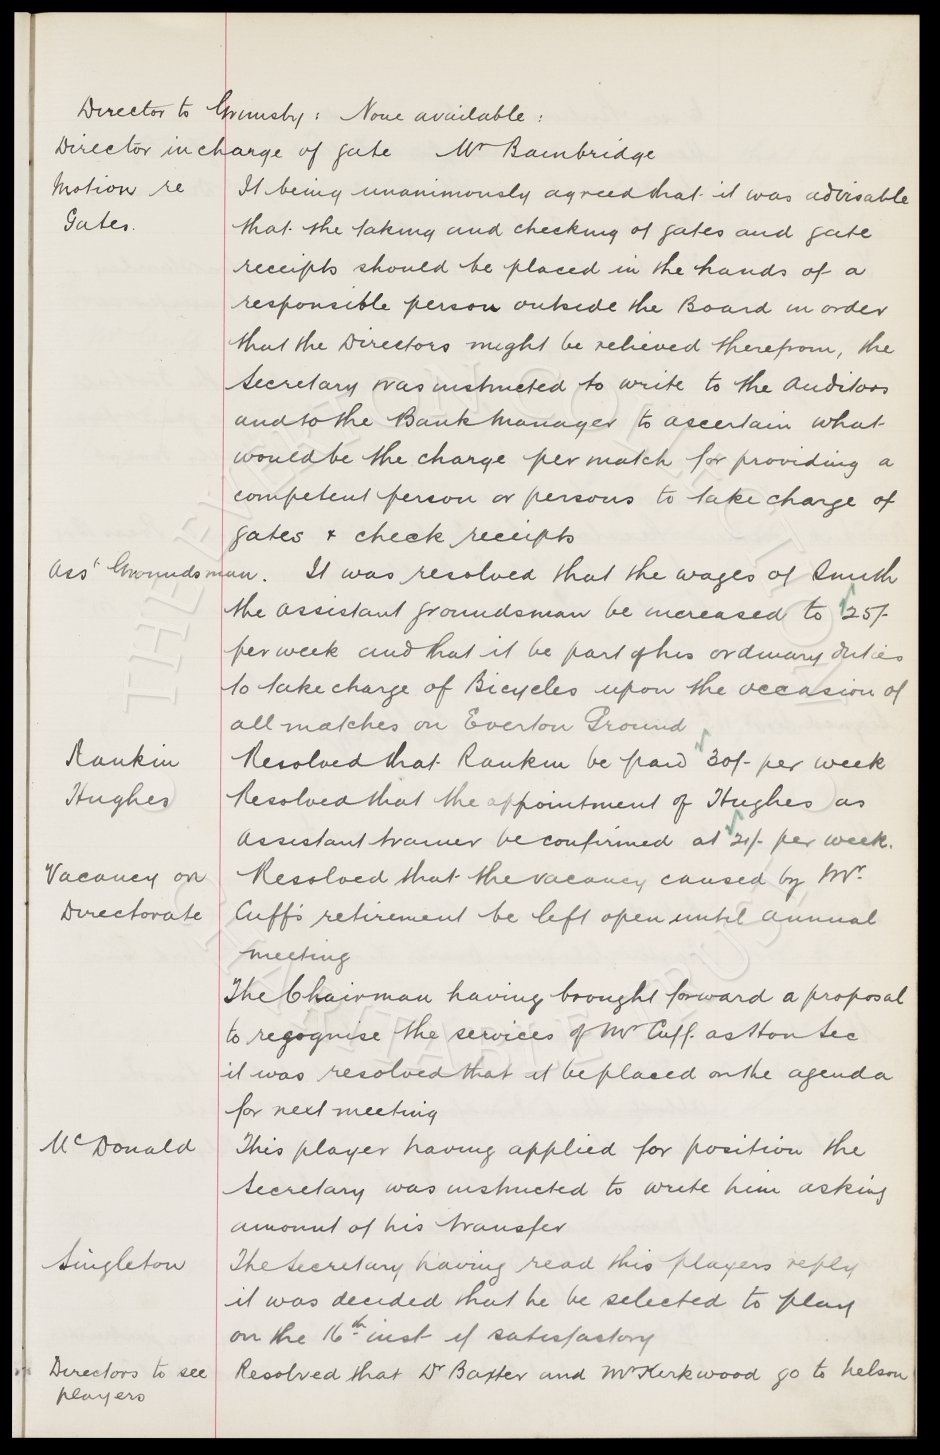 Director to Grimsby : None available :
Director in charge of gate Mr Bainbridge
Motion re It being unanimously agreed that it was advisable
Gates. that the taking and checking of gates and gate
receipts should be placed in the hands of a
responsible person outside the Board in order
that the Directors might be relieved therefrom, the
Secretary was instructed to write to the Auditors
and to the Bank Manager to ascertain what
would be the charge per match for providing a
competent person or persons to take charge of
gates & check receipts
Asst Groundsman. It was resolved that the wages of Smith
the assistant groundsman be increased to 25/-
per week and that it be part of his ordinary duties
to take charge of Bicycles upon the occasion of
all matches on Everton Ground
Rankin Resolved that Rankin be paid 30/- per week
Hughes Resolved that the appointment of Hughes as
Assistant trainer be confirmed at 21/- per week.
Vacancy on Resolved that the vacancy caused by Mr.
Directorate Cuff's retirement be left open until annual
meeting
The Chairman having brought forward a proposal
to regognise the services of Mr Cuff. as Hon Sec
it was resolved that it be placed on the agenda
for next meeting
McDonald This player having applied for position the
Secretary was instructed to write him asking
amount of his transfer
Singleton The Secretary having read this players reply
it was decided that he be selected to play
on the 16th inst if satisfactory
Directors to see Resolved that Dr Baxter and Mr Kirkwood go to Nelson
players
THE EVERTON COLLECTION
CHARITABLE TRUST